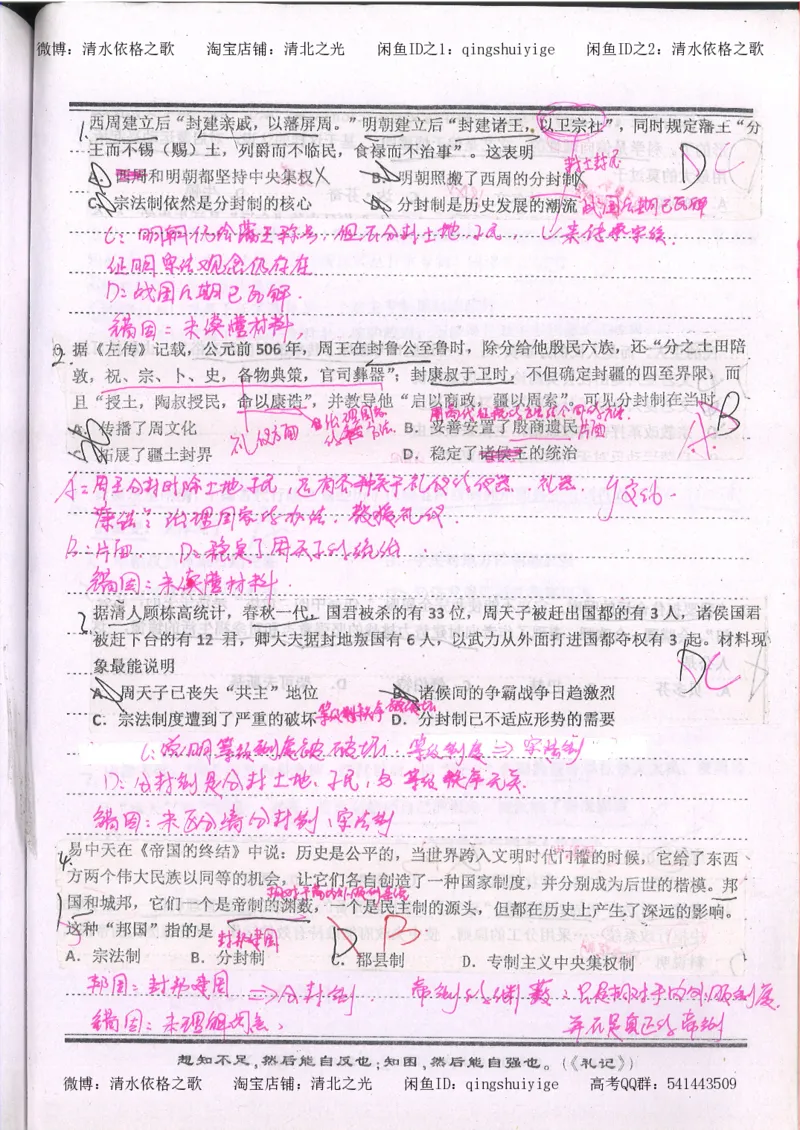 微博：清水依格之歌 淘宝店铺：清北之光 闲鱼ID之1：qingshuiyige 闲鱼ID之2：清水依格之歌
1. 西周建立后“封建亲戚，以藩屏周。”明朝建立后“封建诸王，以卫宗社”，同时规定藩王“分
王而不锡（赐）土，列爵而不临民，食禄而不治事”。这表明
封土封民
D C
A. 西周和明朝都坚持中央集权 X B. 明朝照搬了西周的分封制 X
C. 宗法制依然是分封制的核心 D. 分封制是历史发展的潮流 战国后期已瓦解
C：明朝仍给藩王称号，但不分封土地、子民，
证明宗法观念仍存在
D：战国后期已瓦解.
错因：未读懂材料.
2. 据《左传》记载，公元前 506 年，周王在封鲁公至鲁时，除分给他殷民六族，还“分之土田陪
敦，祝、宗、卜、史，备物典策，官司彝器”；封康叔于卫时，不但确定封疆的四至界限，而
且“授土，陶叔授民，命以康诰”，并教导他“启以商政，疆以周索”。可见分封制在当时
A. 传播了周文化 B. 妥善安置了殷商遗民 片面
B
礼仪方面
C. 拓展了疆土封界 D. 稳定了诸侯王的统治
A：周王分封时除土地、子民，还有各种关于礼仪的仪器、礼器
康诰：治理国家的办法，教授礼仪.
B：片面. D：稳定了周天子的统治.
错因：未读懂材料.
3. 据清人顾栋高统计，春秋一代，国君被杀的有 33 位，周天子被赶出国都的有 3 人，诸侯国君
被赶下台的有 12 君，卿大夫据封地叛国有 6 人，以武力从外面打进国都夺权有 3 起。材料现
象最能说明
D C
A. 周天子已丧失“共主”地位 B. 诸侯间的争霸战争日趋激烈
C. 宗法制度遭到了严重的破坏 等级制秩序被破坏 D. 分封制已不适应形势的需要
C：说明等级制度被破坏. 等级制度⇒宗法制
D：分封制是分封土地、子民，与等级秩序无关.
错因：未区分清分封制、宗法制
4. 易中天在《帝国的终结》中说：历史是公平的，当世界跨入文明时代门槛的时候，它给了东西
方两个伟大民族以同等的机会，让它们各自创造了一种国家制度，并分别成为后世的楷模。邦
国和城邦，它们一个是帝制的渊薮，一个是民主制的源头，但都在历史上产生了深远的影响。
这种“邦国”指的是 封邦建国
D B
A. 宗法制 B. 分封制 C. 郡县制 D. 专制主义中央集权制
邦国：封邦建国 ⇒分封制. 帝制的渊薮：只是相对于内外服制度，
错因：未理解词意， 并不是真正的帝制
想知不足，然后能自反也；知困，然后能自强也。（《礼记》）
微博：清水依格之歌 淘宝店铺：清北之光 闲鱼ID：qingshuiyige 高考QQ群：541443509